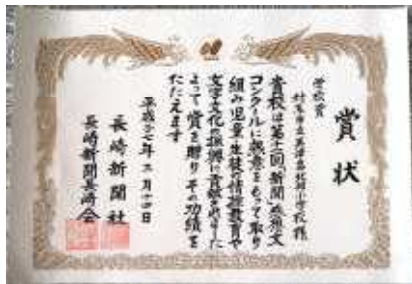 賞状
学校賞
小学校 様
貴校は第十二回「新聞感想文
コンクール」に熱意をもって取り
組み児童生徒の情操教育や
文字文化の振興に貢献されました
よって賞を贈りその功績を
たたえます
平成 年三月十四日
長崎新聞社
長崎新聞長崎会